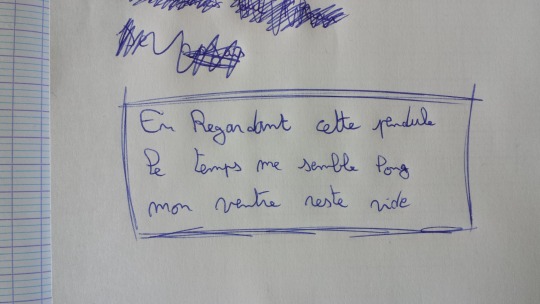 En Regardant cette pendule
Le temps me semble long
mon ventre reste vide